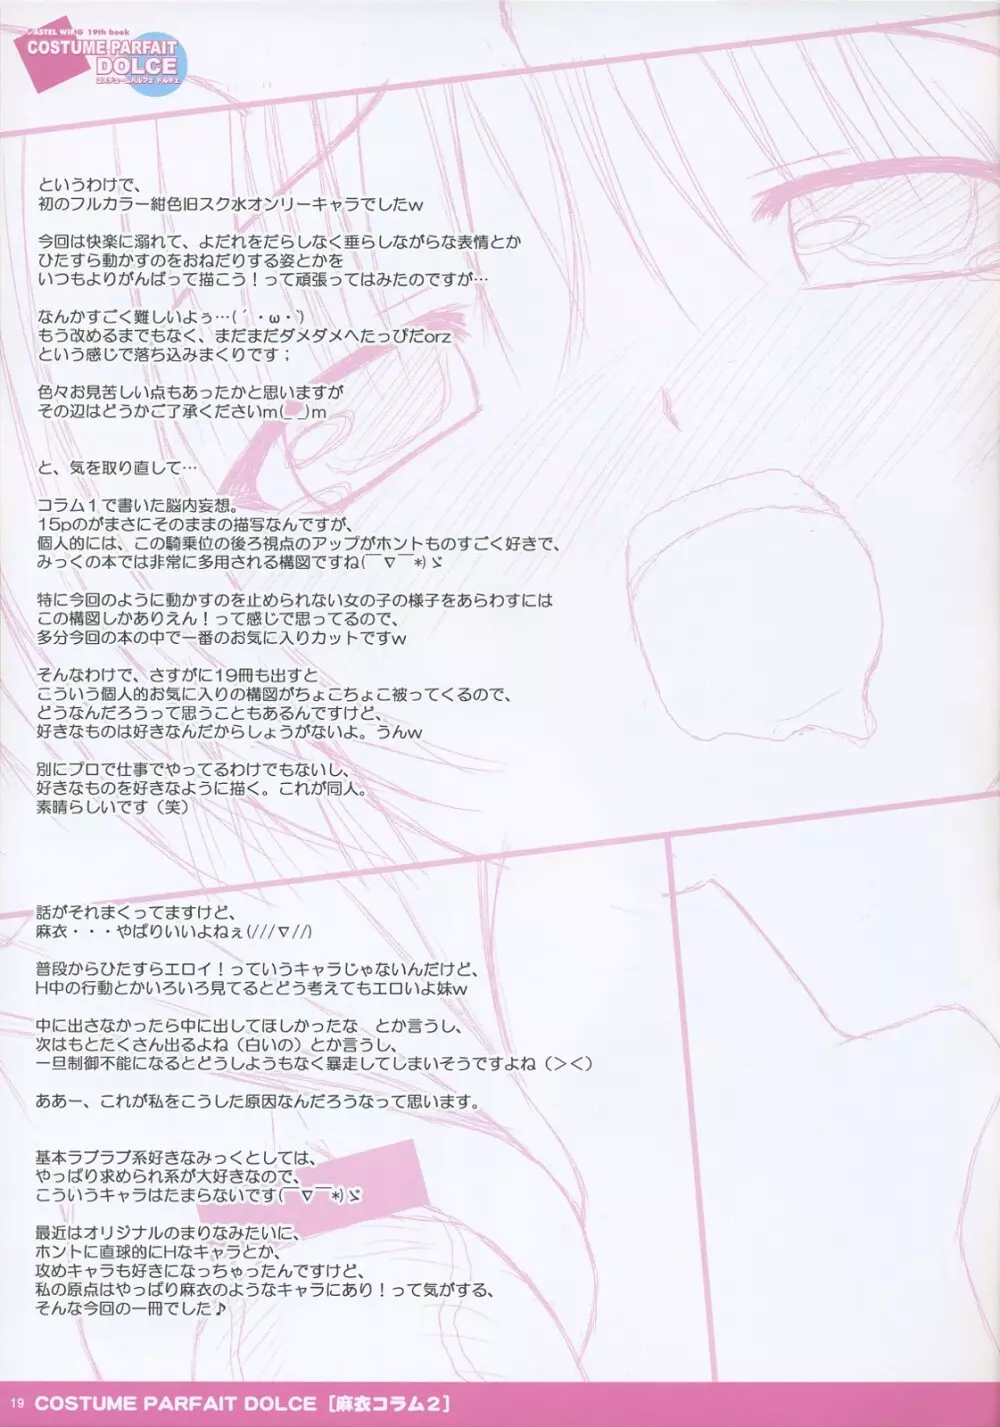 PASTEL WING 19th book
COSTUME PARFAIT
DOLCE
コスチュームパルフェ ドルチェ
というわけで、
初のフルカラー紺色旧スク水オンリーキャラでしたｗ
今回は快楽に溺れて、よだれをだらしなく垂らしながらな表情とか
ひたすら動かすのをおねだりする姿とかを
いつもよりがんばって描こう！って頑張ってはみたのですが…
なんかすごく難しいよぅ…(´・ω・`)
もう改めるまでもなく、まだまだダメダメへたっぴだorz
という感じで落ち込みまくりです；
色々お見苦しい点もあったかと思いますが
その辺はどうかご了承くださいm(_ _)m
と、気を取り直して…
コラム１で書いた脳内妄想。
15pのがまさにそのままの描写なんですが、
個人的には、この騎乗位の後ろ視点のアップがホントものすごく好きで、
みっくの本では非常に多用される構図ですね(￣▽￣*)ゞ
特に今回のように動かすのを止められない女の子の様子をあらわすには
この構図しかありえん！って感じで思ってるので、
多分今回の本の中で一番のお気に入りカットですｗ
そんなわけで、さすがに19冊も出すと
こういう個人的お気に入りの構図がちょこちょこ被ってくるので、
どうなんだろうって思うこともあるんですけど、
好きなものは好きなんだからしょうがないよ。うんｗ
別にプロで仕事でやってるわけでもないし、
好きなものを好きなように描く。これが同人。
素晴らしいです（笑）
話がそれまくってますけど、
麻衣・・・やぱりいいよねぇ(///∇//)
普段からひたすらエロイ！っていうキャラじゃないんだけど、
H中の行動とかいろいろ見てるとどう考えてもエロいよ妹ｗ
中に出さなかったら中に出してほしかったな　とか言うし、
次はもとたくさん出るよね（白いの）とか言うし、
一旦制御不能になるとどうしようもなく暴走してしまいそうですよね（＞＜）
ああー、これが私をこうした原因なんだろうなって思います。
基本ラブラブ系好きなみっくとしては、
やっぱり求められ系が大好きなので、
こういうキャラはたまらないです(￣▽￣*)ゞ
最近はオリジナルのまりなみたいに、
ホントに直球的にHなキャラとか、
攻めキャラも好きになっちゃったんですけど、
私の原点はやっぱり麻衣のようなキャラにあり！って気がする、
そんな今回の一冊でした♪
19 COSTUME PARFAIT DOLCE［麻衣コラム２］